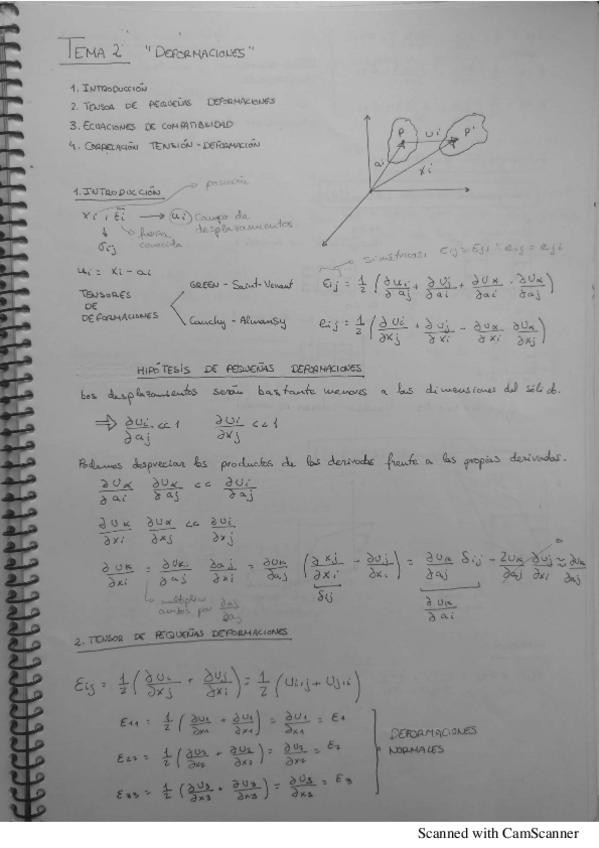 TEMA 2 "DEFORMACIONES"
1. INTRODUCCIÓN
2. TENSOR DE PEQUEÑAS DEFORMACIONES
3. ECUACIONES DE COMPATIBILIDAD
4. CORRELACIÓN TENSIÓN - DEFORMACIÓN
P ui P'
ai xi
1. INTRODUCCIÓN posición
xi , ti → (ui) Campo de desplazamientos
↓ fuerza conocida
σij
ui = xi - ai
simétricas: Eij = Eji ; eij = eji
TENSORES DE DEFORMACIONES
GREEN - Saint-Venant Eij = 1/2 (∂ui/∂aj + ∂uj/∂ai + ∂uα/∂ai · ∂uα/∂aj)
Cauchy - Almansy eij = 1/2 (∂ui/∂xj + ∂uj/∂xi - ∂uα/∂xi ∂uα/∂xj)
HIPÓTESIS DE PEQUEÑAS DEFORMACIONES
Los desplazamientos serán bastante menores a las dimensiones del sólido.
⇒ ∂ui/∂aj << 1 ∂ui/∂xj << 1
Podemos despreciar los productos de las derivadas frente a las propias derivadas.
∂uα/∂ai ∂uα/∂aj << ∂ui/∂aj
∂uα/∂xi ∂uα/∂xj << ∂ui/∂xj
∂uα/∂xi = ∂uα/∂aj ∂aj/∂xi = ∂uα/∂aj (∂xj/∂xi - ∂uj/∂xi) = ∂uα/∂aj δij - ∂uα/∂aj ∂uj/∂xi ≈ ∂uα/∂aj
δij ∂uα/∂ai
multiplico ambos por ∂aj/∂aj
2. TENSOR DE PEQUEÑAS DEFORMACIONES
Eij = 1/2 (∂ui/∂xj + ∂uj/∂xi) = 1/2 (ui,j + uj,i)
E11 = 1/2 (∂u1/∂x1 + ∂u1/∂x1) = ∂u1/∂x1 = E1
E22 = 1/2 (∂u2/∂x2 + ∂u2/∂x2) = ∂u2/∂x2 = E2
E33 = 1/2 (∂u3/∂x3 + ∂u3/∂x3) = ∂u3/∂x3 = E3
DEFORMACIONES
NORMALES
Scanned with CamScanner